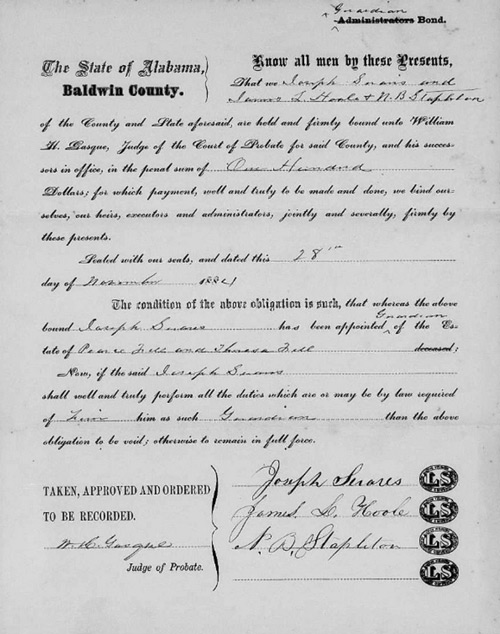 Guardian
Administrators Bond.
The State of Alabama,
Baldwin County.
Know all men by these Presents,
That we Joseph Suares and
James L. Hoole & N. B Stapleton
of the County and State aforesaid, are held and firmly bound unto William
H. Gasque, Judge of the Court of Probate for said County, and his succes-
sors in office, in the penal sum of One Hundred
Dollars; for which payment, well and truly to be made and done, we bind our-
selves, our heirs, executors and administrators, jointly and severally, firmly by
these presents.
Sealed with our seals, and dated this 28th
day of November
The condition of the above obligation is such, that whereas the above
Guardian
bound Joseph Suares has been appointed of the Es-
tate of and Theresa deceased;
Now, if the said Joseph Suares
shall well and truly perform all the duties which are or may be by law required
of him him as such Guardian than the above
obligation to be void; otherwise to remain in full force.
TAKEN, APPROVED AND ORDERED
TO BE RECORDED.
W. H. Gasque
Judge of Probate.
Joseph Suares LS
James. L. Hoole LS
N. B. Stapleton LS
LS